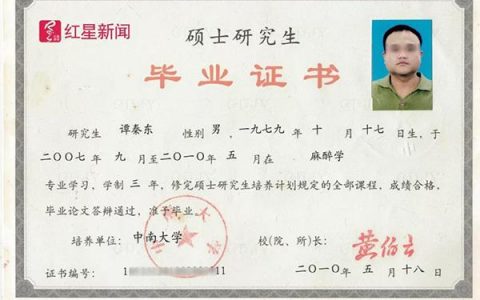 红星新闻
硕士研究生
毕业证书
研究生 谭秦东 性别 男, 一九七九 年 十 月 十七 日生, 于
二〇〇七 年 九 月至 二〇一〇 年 五 月在 麻醉学
专业学习, 学制 三 年, 修完硕士研究生培养计划规定的全部课程, 成绩合格,
毕业论文答辩通过, 准予毕业。
培养单位: 中南大学 校(院、所)长: 黄伯云
证书编号: 1 11 二〇一〇 年 五 月 十八 日